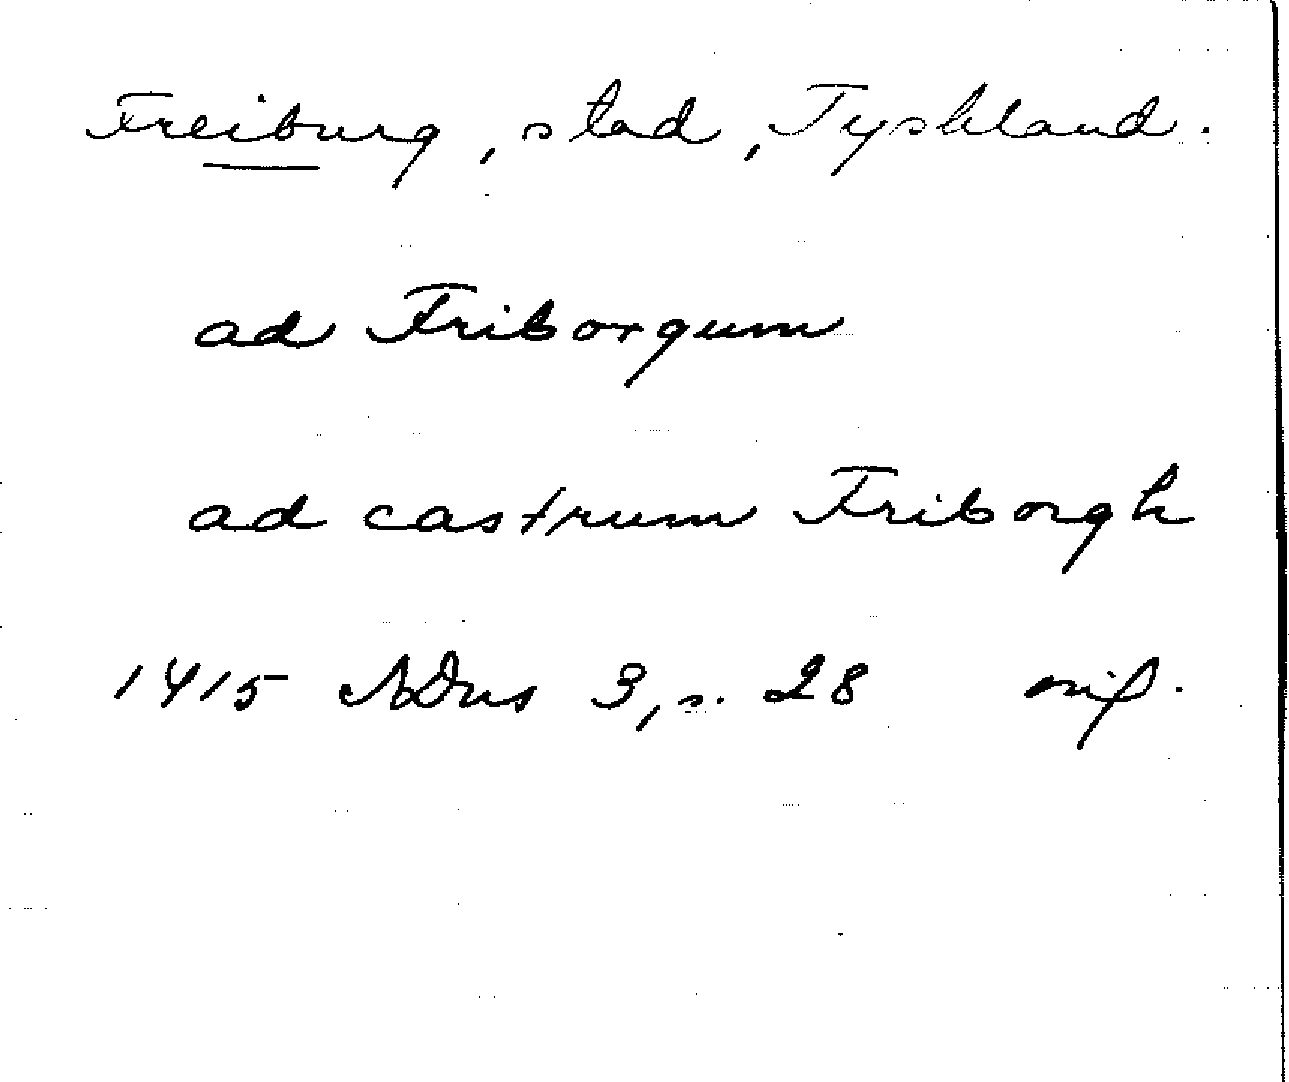 Freiburg, stad, Tyskland.
ad Friborgum
ad castrum Friborgh
1415 SDns 3, s. 28